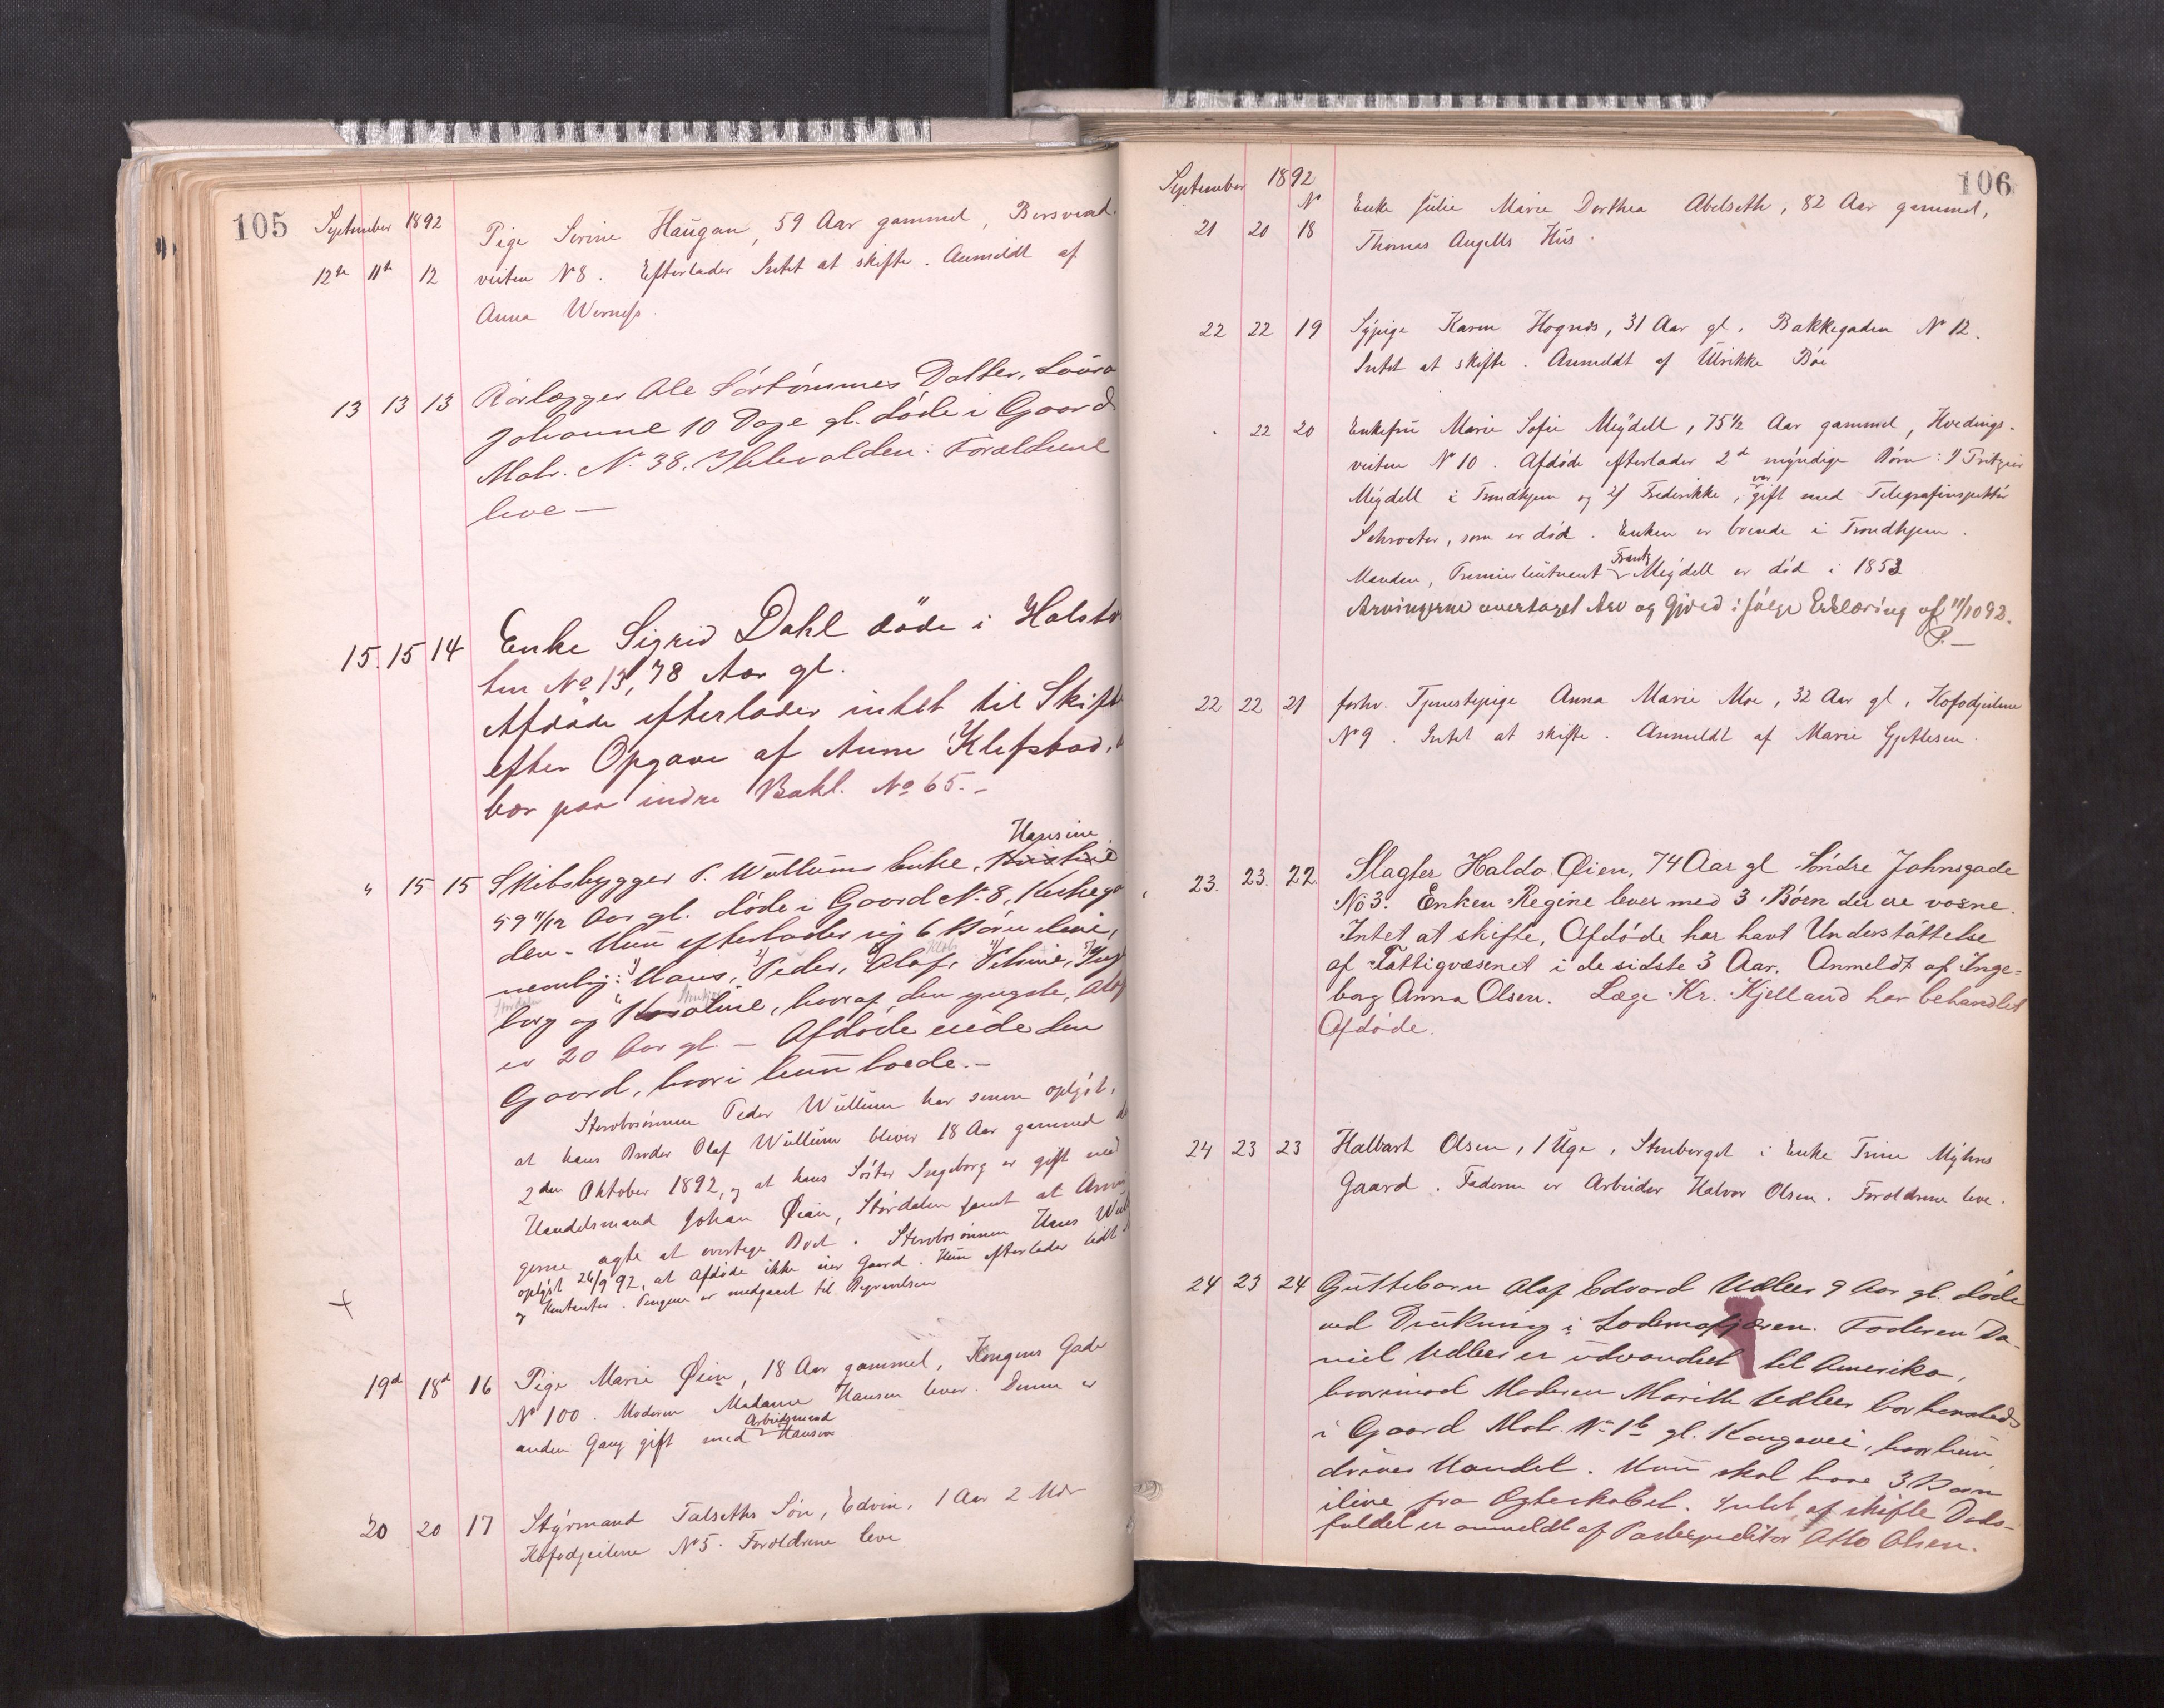 105
September 1892
12te 11te 12
Pige Serine Haugan, 59 Aar gammel, Borsvend
veiten No 8. Efterlader Intet at skifte. Anmeldt af
Anna Werness.
13 13 13
Rørlægger Ole Datter, Laura
Johanne 10 Dage gl. døde i Gaard
Matr. No. 38. Ihlevolden: Forældrene
leve —
15. 15 14
Enke Sigrid Dahl døde i Halstv
ten No 13, 78 Aar gl.
Afdøde efterlader intet til Skift
efter Opgave af Anne Klefstad,
bor paa indre Bakl. No 65. –
" 15 15
Hansine
Skibsbygger P. Wullums Enke,
59 11/12 Aar gl. døde i Gaard No. 8, Kirkega
den. Hun efterlader sig 6 Børn ilive,
nemlig: 1) Hans, 2) Peder, 3) Olaf, 4) Petrine, 5) Inge
borg og 6 Karoline, hvoraf den yngste, Olaf
er 20 Aar gl. — Afdøde eiede den
Gaard, hvori hun boede. –
Stervbosønnen Peder Wullum har senere oplyst,
at hans Broder Olaf Wullum bliver 18 Aar gammel d
2den Oktober 1892, og at hans Søster Ingeborg er gift med
Handelsmand Johan Øien, Størdalen samt at Arvin
gerne agte at overtage Boet. Stervbosønnen Hans Wul
oplyst 26/9 92, at Afdøde ikke eier Gaard. Hun efterlader lidt
og Kontanter. Pengene er medgaaet til Begravelsen
19d 18d 16
Pige Marie Øien, 18 Aar gammel, Kongens Gade
No 100. Moderen Madame Hansen lever. Denne er
Arbeidsmand
anden Gang gift med Hansen
20 20 17
Styrmand Talseths Søn, Edvin, 1 Aar 2 Mdr
Kofodgeilene No 5. Forældrene leve
106
September 1892
No
21 20 18
Enke Julie Marie Dorthea Abelseth, 82 Aar gammel,
Thomas Angells Hus.
22 22 19
Sypige Karen Hognes, 31 Aar gl. Bakkegaden No 12.
Intet at skifte. Anmeldt af Ulrikke Bøe
" 22 20
Enkefru Marie Sofie Meydell, 75 1/2 Aar gammel, Hvedings-
veiten No 10. Afdøde efterlader 2de myndige Børn: 1/ Pritzier
Meydell i Trondhjem og 2/ Frederikke, var gift med Telegrafinspektør
Schroeter, som er død. Enken er boende i Trondhjem.
Manden, Premierlieutnant Frantz Meydell er død i 1853
Arvingerne overtaget Arv og Gjæld ifølge Erklæring af 11/10 92.
P. —
22 22 21
forhv. Tjenestepige Anna Marie Moe, 32 Aar gl, Kofodgeilene
No 9. Intet at skifte. Anmeldt af Marie Gjetlesen.
23. 23. 22.
Slagter Haldo Øien, 74 Aar gl Søndre Johnsgade
No 3. Enken Regine lever med 3 Børn der ere voxne.
Intet at skifte, Afdøde har havt Understøttelse
af Fattigvæsenet i de sidste 3 Aar. Anmeldt af Inge=
borg Anna Olsen. Læge Kr. Kjelland har behandlet
Afdøde.
24 23 23
Halbart Olsen, 1 Uge, Stenberget i Enke Trine Myhres
Gaard. Faderen er Arbeider Halvor Olsen. Forældrene leve.
24 23 24
Guttebarn Olaf Edvard Udleer 9 Aar gl. døde
ved Drukning i Lademofjæren. Faderen Da-
niel Udleer er udvandret til Amerika,
hvorimod Moderen Marith Udleer bor hersteds
i Gaard Matr. No 1b gl. Kongevei, hvor hun
driver Handel. Hun skal have 3 Børn
ilive fra Ægteskabet. Intet at skifte Døds-
faldet er anmeldt af Postexpeditør Otto Olsen.